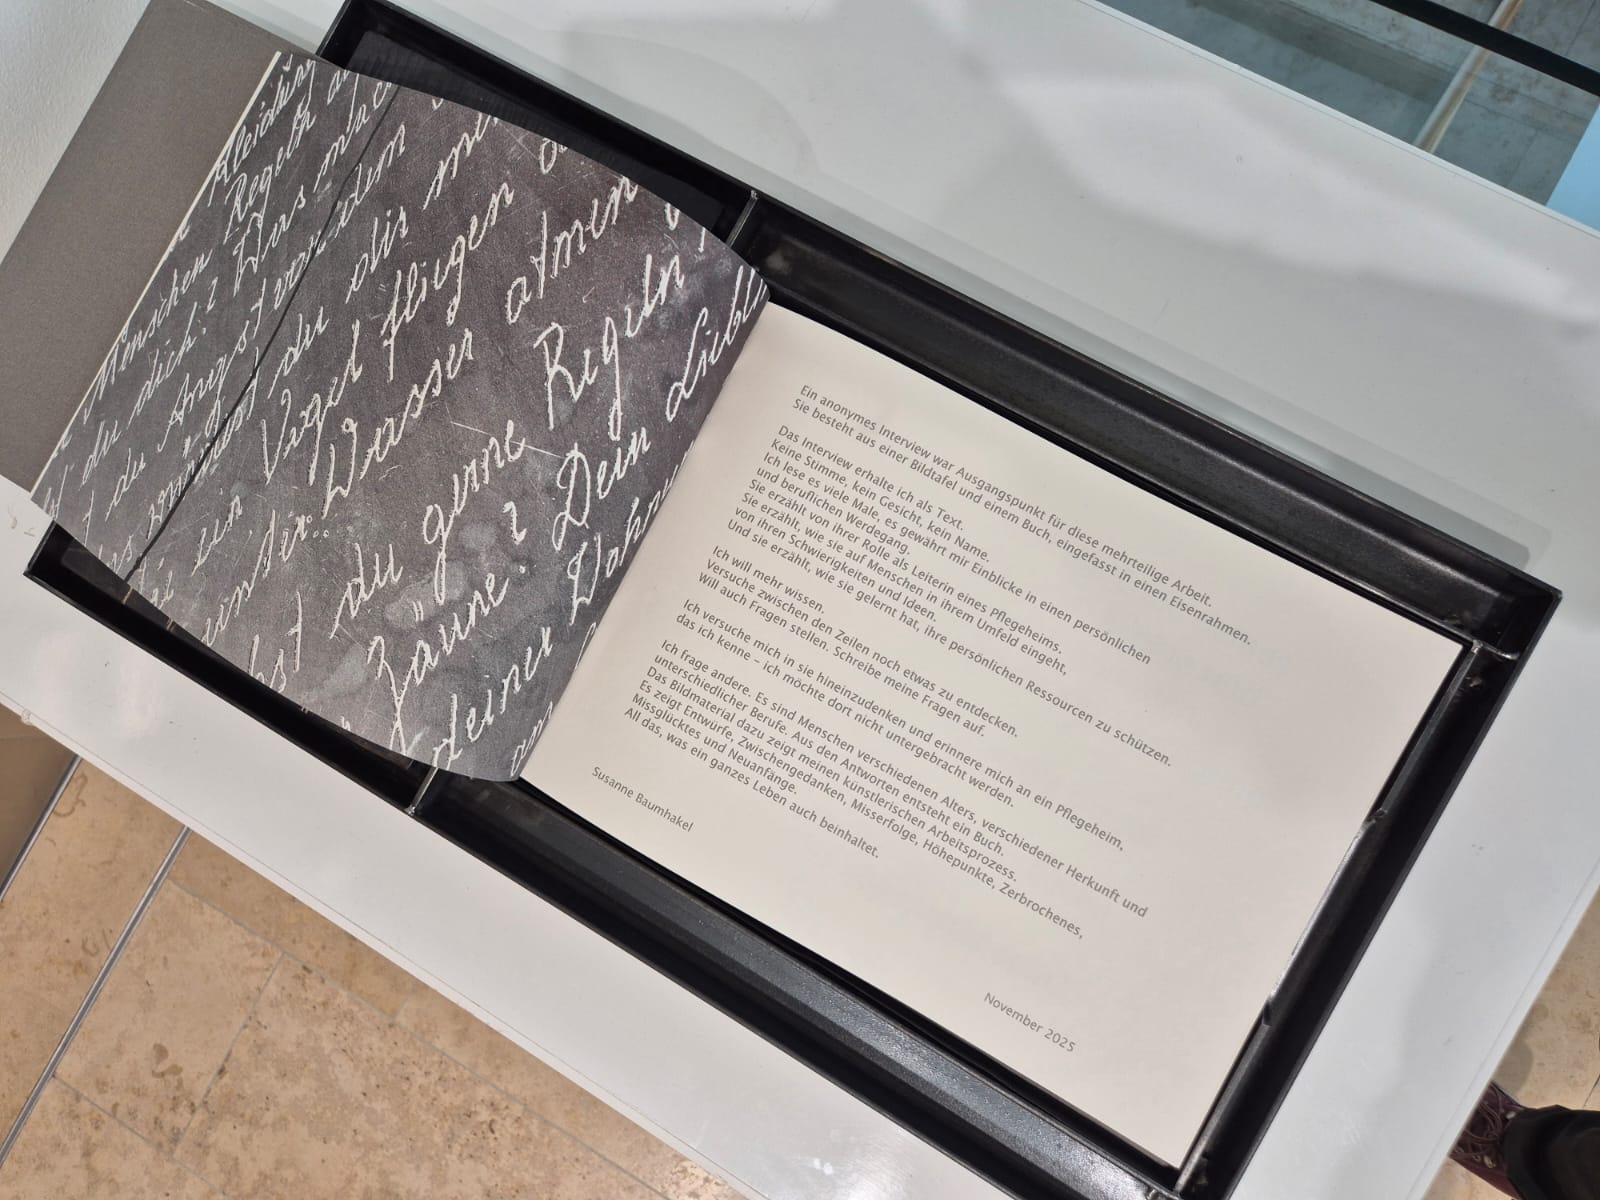 Kleidung
Regeln
Menschen ? Das macht
du dich ?
du Angst vor dem
du dir
ein Vogel fliegen
unter Wasser atmen
du gerne Regeln
Zäune ? Dein Liebl
deiner
Ein anonymes Interview war Ausgangspunkt für diese mehrteilige Arbeit.
Sie besteht aus einer Bildtafel und einem Buch, eingefasst in einen Eisenrahmen.
Das Interview erhalte ich als Text.
Keine Stimme, kein Gesicht, kein Name.
Ich lese es viele Male, es gewährt mir Einblicke in einen persönlichen
und beruflichen Werdegang.
Sie erzählt von ihrer Rolle als Leiterin eines Pflegeheims.
Sie erzählt, wie sie auf Menschen in ihrem Umfeld eingeht,
von ihren Schwierigkeiten und Ideen.
Und sie erzählt, wie sie gelernt hat, ihre persönlichen Ressourcen zu schützen.
Ich will mehr wissen.
Versuche zwischen den Zeilen noch etwas zu entdecken.
Will auch Fragen stellen. Schreibe meine Fragen auf.
Ich versuche mich in sie hineinzudenken und erinnere mich an ein Pflegeheim,
das ich kenne – ich möchte dort nicht untergebracht werden.
Ich frage andere. Es sind Menschen verschiedenen Alters, verschiedener Herkunft und
unterschiedlicher Berufe. Aus den Antworten entsteht ein Buch.
Das Bildmaterial dazu zeigt meinen künstlerischen Arbeitsprozess.
Es zeigt Entwürfe, Zwischengedanken, Misserfolge, Höhepunkte, Zerbrochenes,
Missglücktes und Neuanfänge.
All das, was ein ganzes Leben auch beinhaltet.
Susanne Baumhakel
November 2025